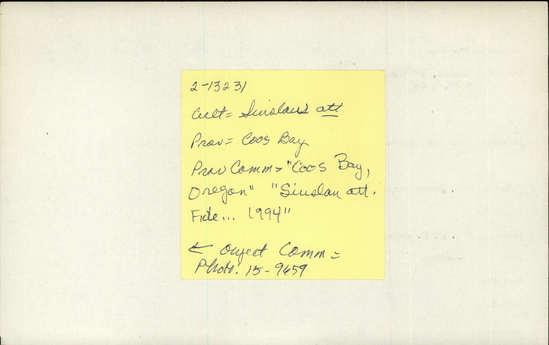 2-13231
Cult = Siuslaw att
Prov = Coos Bay
Prov Comm = "Coos Bay,
Oregon" "Siuslaw att.
Fide... 1994"
← Object Comm =
Photo: 15-9659